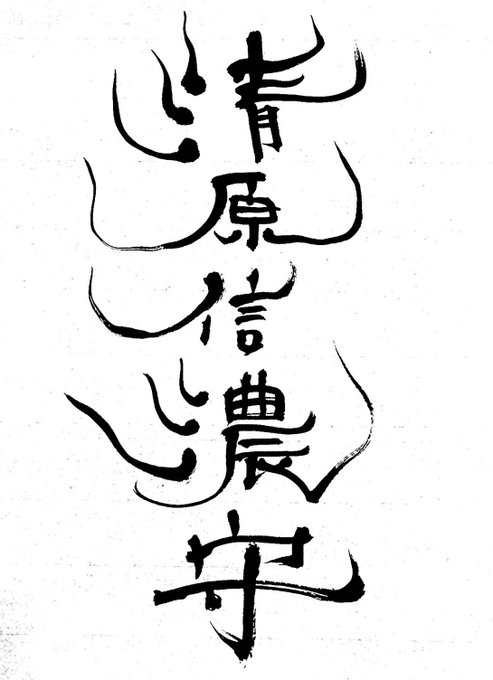 清原信濃守